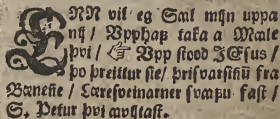 ENN vil eg Sæl mijn uppa
nij / Vpphaf taka a Mæle
þvi / ☞ Vpp stood JEsus /
þo þreittur sie / þrisvarsinū fra
Bænene / Læresveinarner svafu fast /
S. Petur þvi